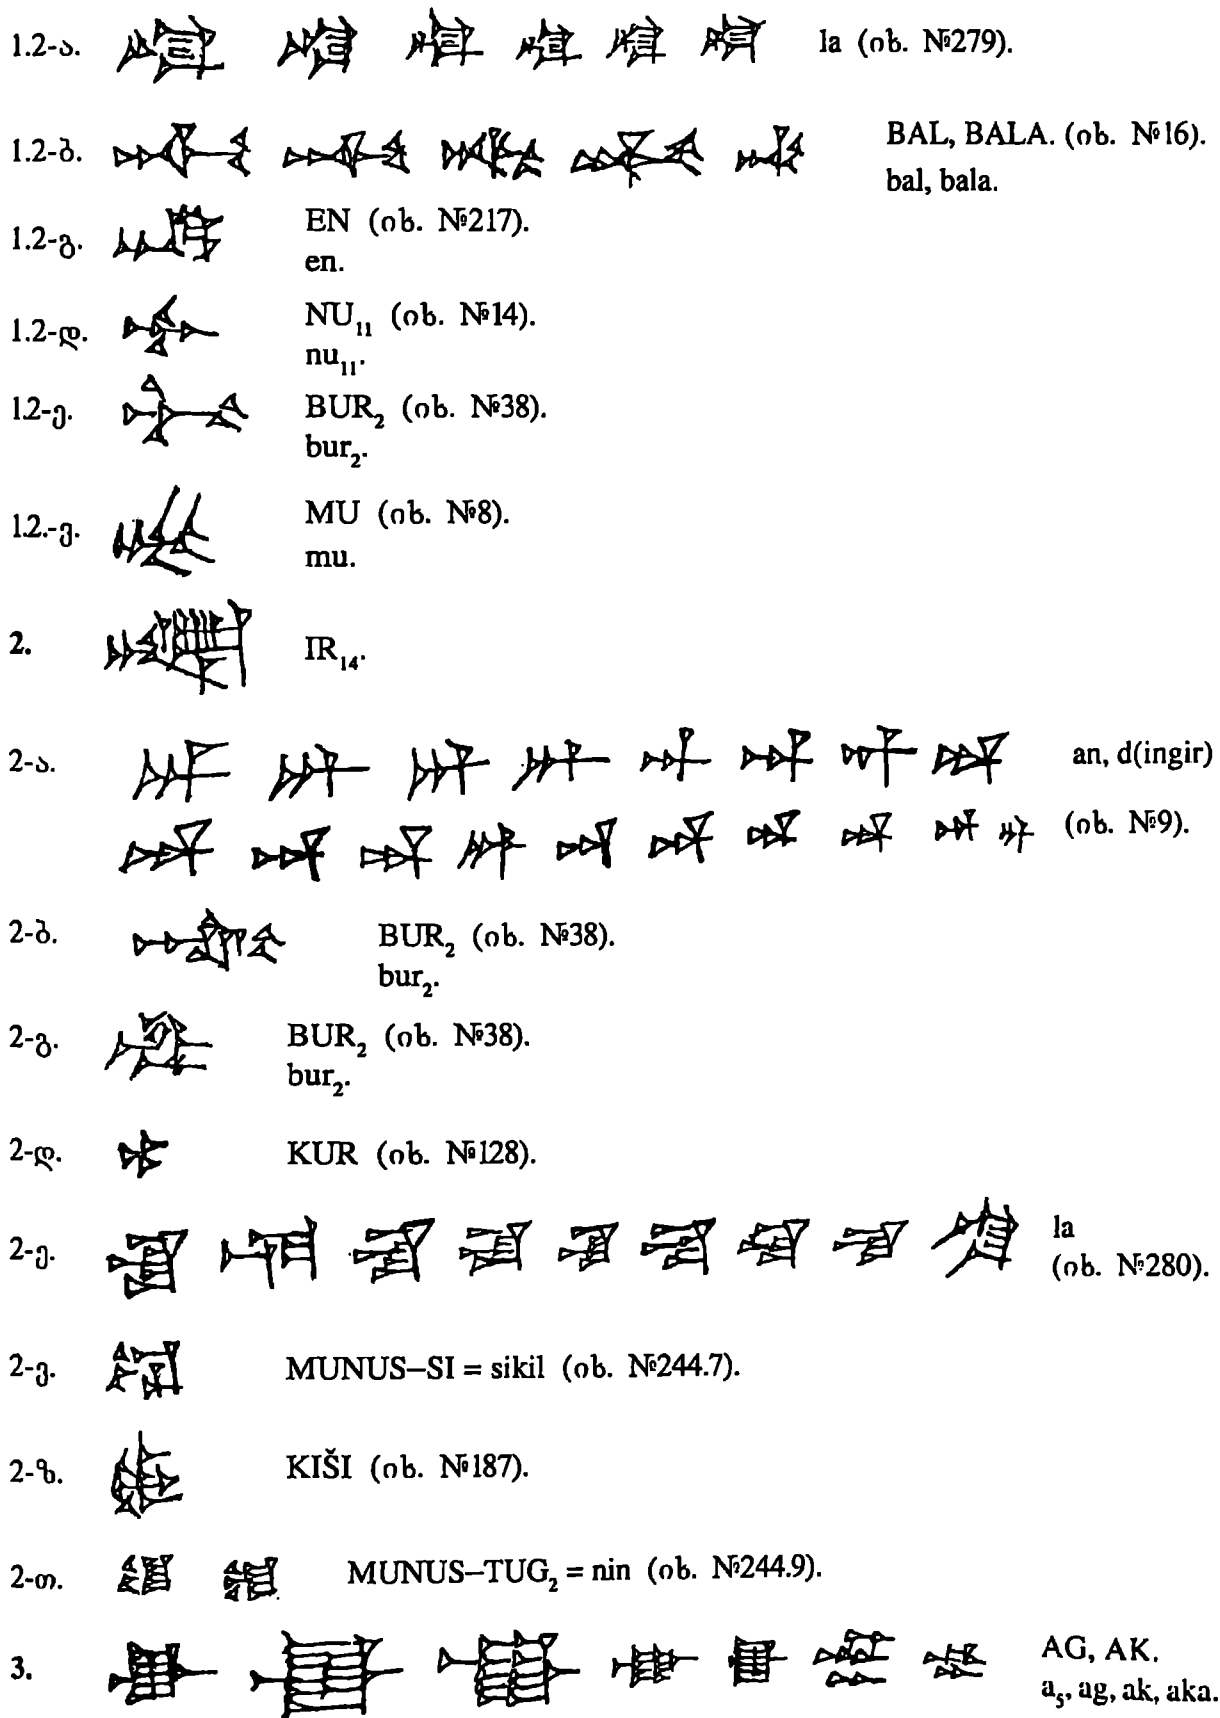 1.2-ა. la (იხ. №279).
1.2-ბ. BAL, BALA. (იხ. №16).
bal, bala.
1.2-გ. EN (იხ. №217).
en.
1.2-დ. NU₁₁ (იხ. №14).
nu₁₁.
1.2-ე. BUR₂ (იხ. №38).
bur₂.
1.2.-ვ. MU (იხ. №8).
mu.
2. IR₁₄.
2-ა. an, d(ingir)
(იხ. №9).
2-ბ. BUR₂ (იხ. №38).
bur₂.
2-გ. BUR₂ (იხ. №38).
bur₂.
2-დ. KUR (იხ. №128).
2-ე. la
(იხ. №280).
2-ვ. MUNUS–SI = sikil (იხ. №244.7).
2-ზ. KIŠI (იხ. №187).
2-თ. MUNUS–TUG₂ = nin (იხ. №244.9).
3. AG, AK.
a₅, ag, ak, aka.